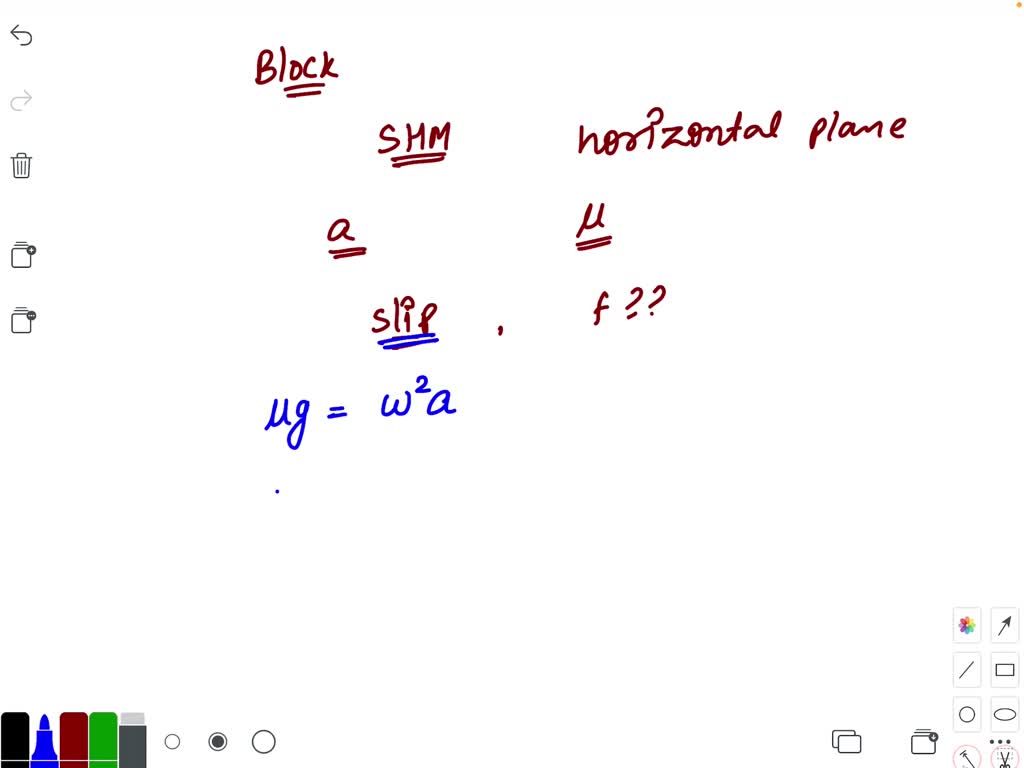 Block
SHM horizontal plane
a μ
slip , f ??
μg = ω²a